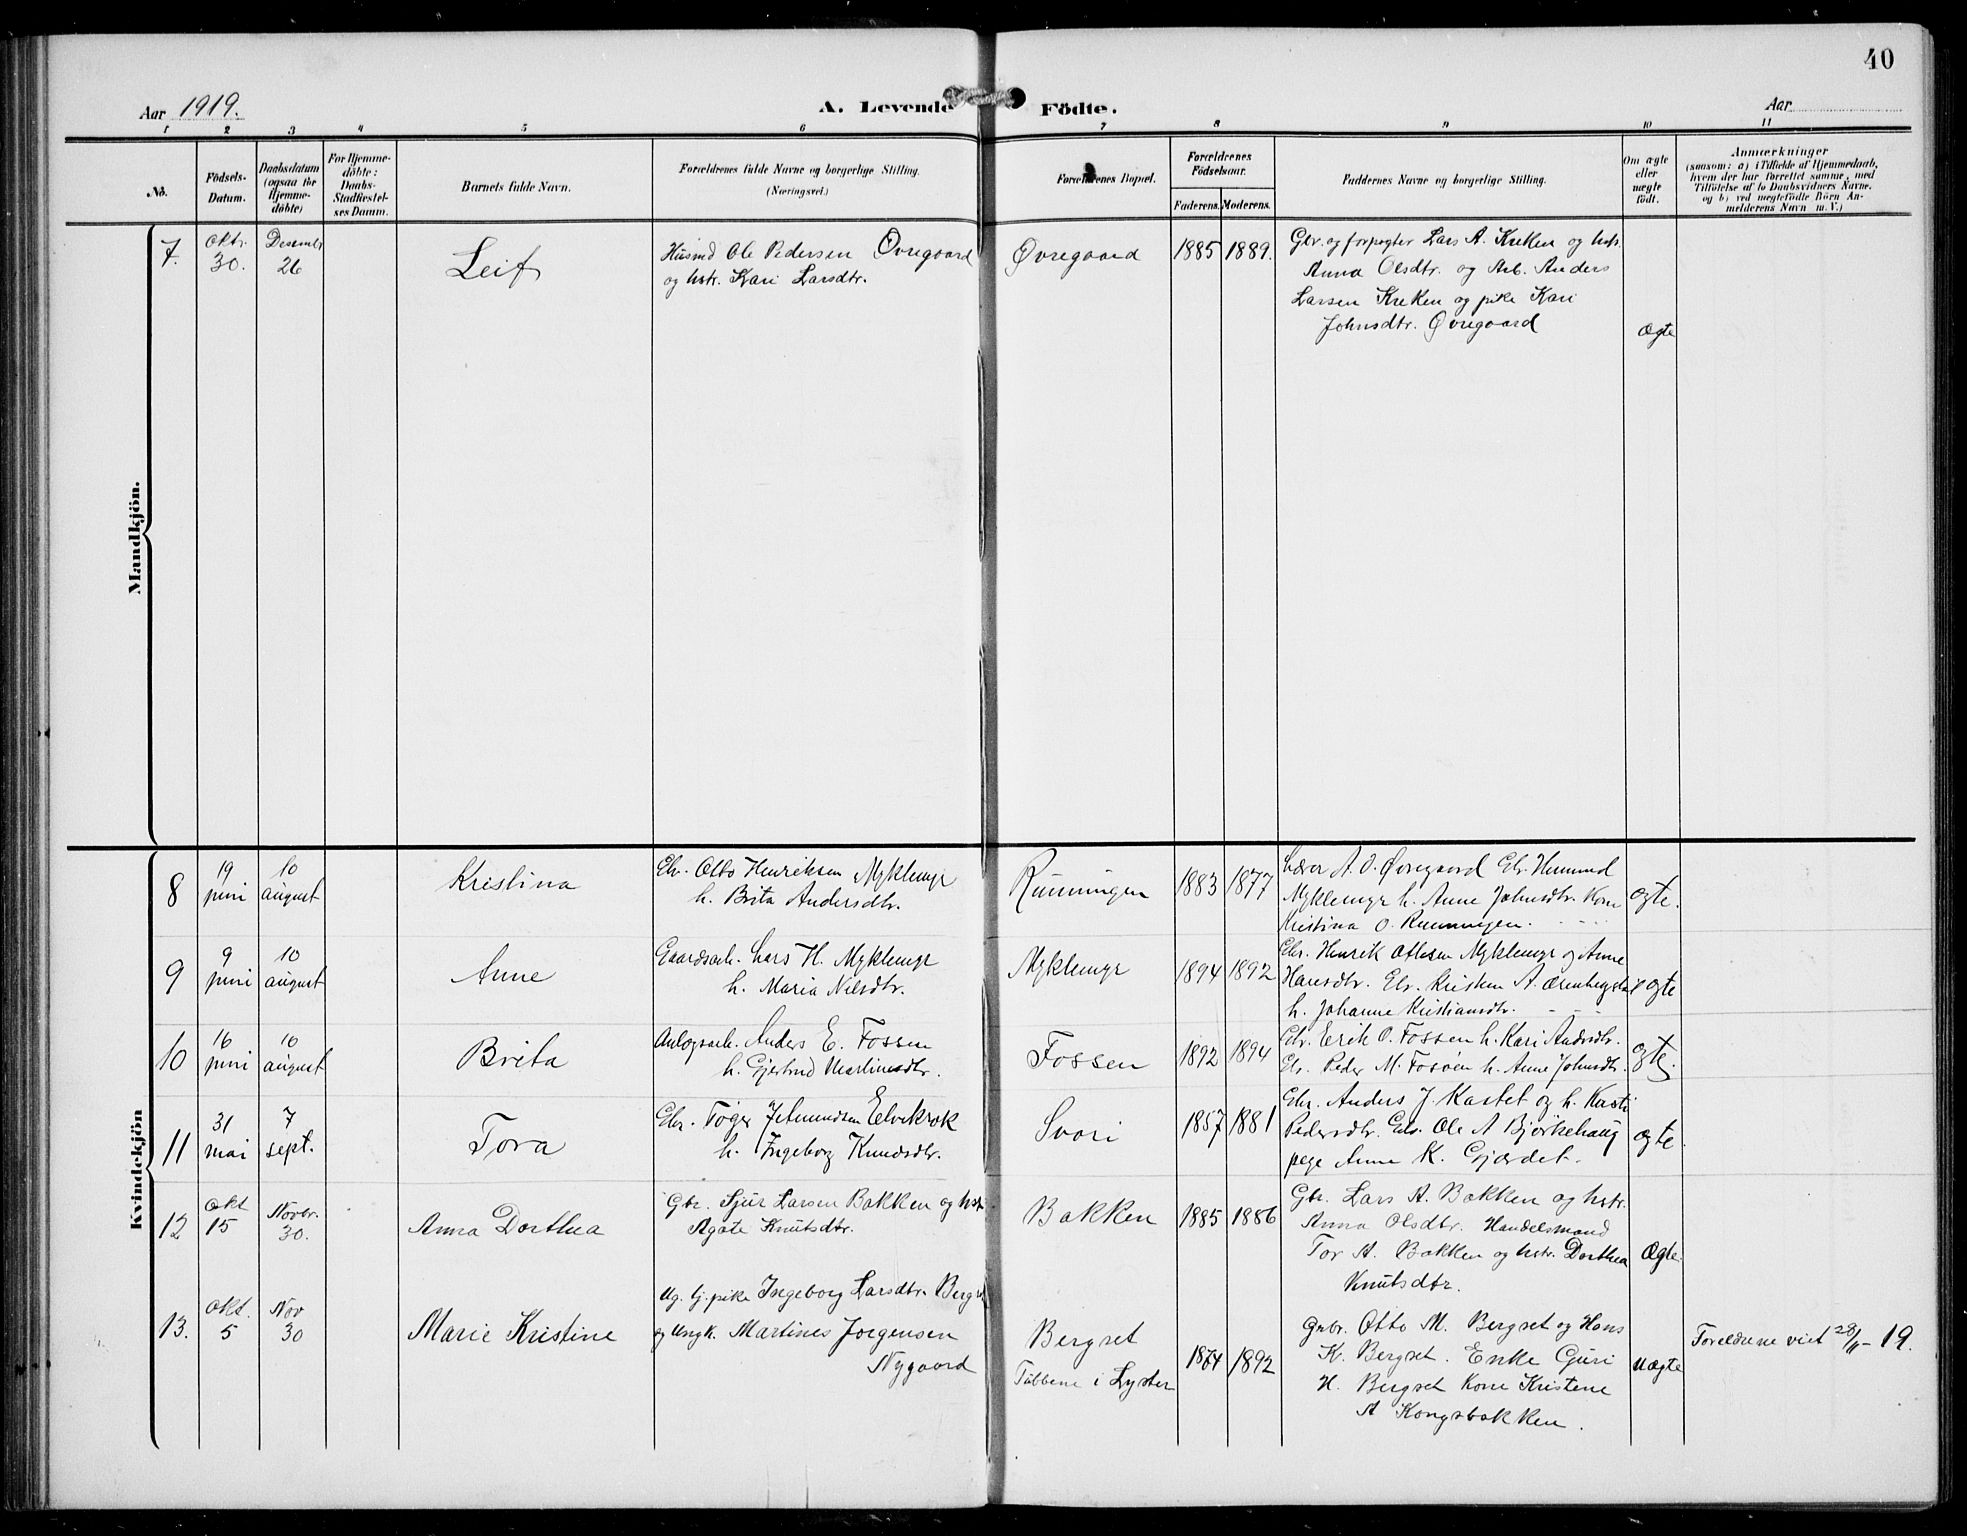 40
Aar 1919.
A. Levende Födte.
Aar
1 2 3 4 5 6 7 8 9 10 11
No.
Födsels-
Datum.
Daabsdatum
(ogsaa for
Hjemme-
döbte)
For Hjemme-
döbte:
Daabs-
Stadfæstel-
ses Datum.
Barnets fulde Navn.
Forældrenes fulde Navne og borgerlige Stilling.
(Næringsvei.)
Forældrenes Bopæl.
Forældrenes
Födselsaar.
Faderens.
Moderens.
Faddernes Navne og borgerlige Stilling.
Om ægte
eller
uægte
födt.
Anmærkninger
(saasom: a) i Tilfælde af Hjemmedaab,
hvem der har forrettet samme, med
Tilföielse af to Daabsvidners Navne,
og b) ved uægtefödte Börn An-
melderens Navn m. V.)
Mandkjön.
7.
Oktr.
30.
Desember
26
Leif
Husmd Ole Pedersen Øvregaard
og hstr. Kari Larsdtr.
Øvregaard
1885
1889.
Gbr. og forpagter Lars A. Kreken og hstr.
Anna Olsdtr. og Arb. Anders
Larsen Kreken og pike Kari
Johnsdtr. Øvregaard
Ægte
Kvindekjön
8
19
juni
10
august
Kristina
Gbr. Otto Henriksen Myklemyr
h. Brita Andersdtr.
Runningen
1883
1877
Lærer A. O. Øvregaard Gbr. Hemmd
Myklemyr h. Anne Johnsdtr. Kone
Kristina O. Runningen.
ægte.
9
9
juni
10
august
Anne
Gaardsarb. Lars H. Myklemyr
h. Maria Nilsdtr.
Myklemyr
1894
1892
Gbr. Henrik Ottesen Myklemyr og Anne
Hansdtr. Gbr. Kristen A.
h. Johanne Kristiansdtr.
ægte
10
16
juni
10
august
Brita
Anlegsarb. Anders E. Fossen
h. Gjertrud Martinsdtr.
Fossen
1892
1894
Gbr. Erik O. Fossen h. Kari Andrsdtr.
Gbr. Peder M. Fosøen h. Anne Johnsdtr.
ægte.
11
31
mai
7
sept.
Tora
Gbr. Tøger Jetmundsen Elvekrok
h. Ingeborg Knudsdtr.
Svori
1857
1881
Gbr. Anders J. Kastet og h. Kasti
Pedersdtr. Gbr. Ole A Bjørkehaug
pige Anne K. Gjærdet.
ægte.
12
Okt
15
Novbr.
30.
Anna Dorthea
Gbr. Sjur Larsen Bakken og hstr
Agate Knutsdtr.
Bakken
1885
1886
Gbr. Lars A. Bakken og hstr.
Anna Olsdtr. Handelsmand
Tor A. Bakken og hstr. Dorthea
Knutsdtr.
Ægte.
13.
Okt.
5
Nov
30
Marie Kristine
Ug. Gj. pike Ingeborg Larsdtr. Bergset
og Ungk. Martines Jørgensen
Nygaard
Bergset
Tubbene i Lyster
1874
1892
Gbr. Otto M. Bergset og Hans
K. Bergset. Enke Guri
H. Bergset Kone Kristene
A Kongsbakken.
uægte
Forældrene viet 28/11-19.